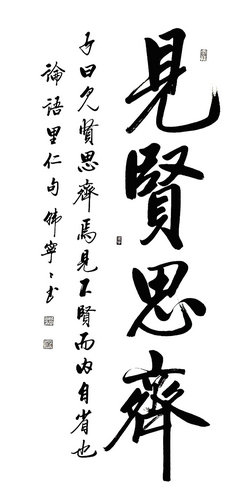 見賢思齊
子曰見賢思齊焉見不賢而內自省也
論語里仁句佛寧